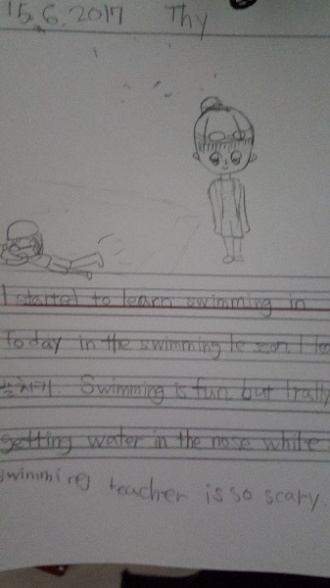 15.6.2017 Thy
I started to learn swimming in
Today in the swimming le son I le
Swimming is fun but I rally
getting water in the nose white
swimming teacher is so scary.